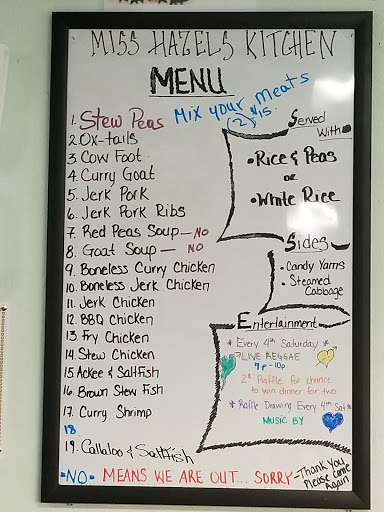 MISS HAZELS KITCHEN
MENU
Mix your meats
(2) $15
1. Stew Peas
2. Ox-tails
3 Cow Foot
4. Curry Goat
5. Jerk Pork
6. Jerk Pork Ribs
7. Red Peas Soup — NO
8. Goat Soup — NO
9. Boneless Curry Chicken
10. Boneless Jerk Chicken
11. Jerk Chicken
12. BBQ Chicken
13. Fry Chicken
14 Stew Chicken
15 Ackee & Saltfish
16. Brown Stew Fish
17. Curry Shrimp
18
19. Callaloo & Saltfish
Served
With
• Rice & Peas
or
• White Rice
Sides
• Candy Yams
• Steamed
Cabbage
Entertainment
* Every 4th Saturday *
LIVE REGGAE
7p-10p
2$ Raffle for chance
to win dinner for two
* Raffle Drawing Every 4th Sat *
MUSIC BY
"NO" MEANS WE ARE OUT... SORRY - Thank You
Please Come
Again